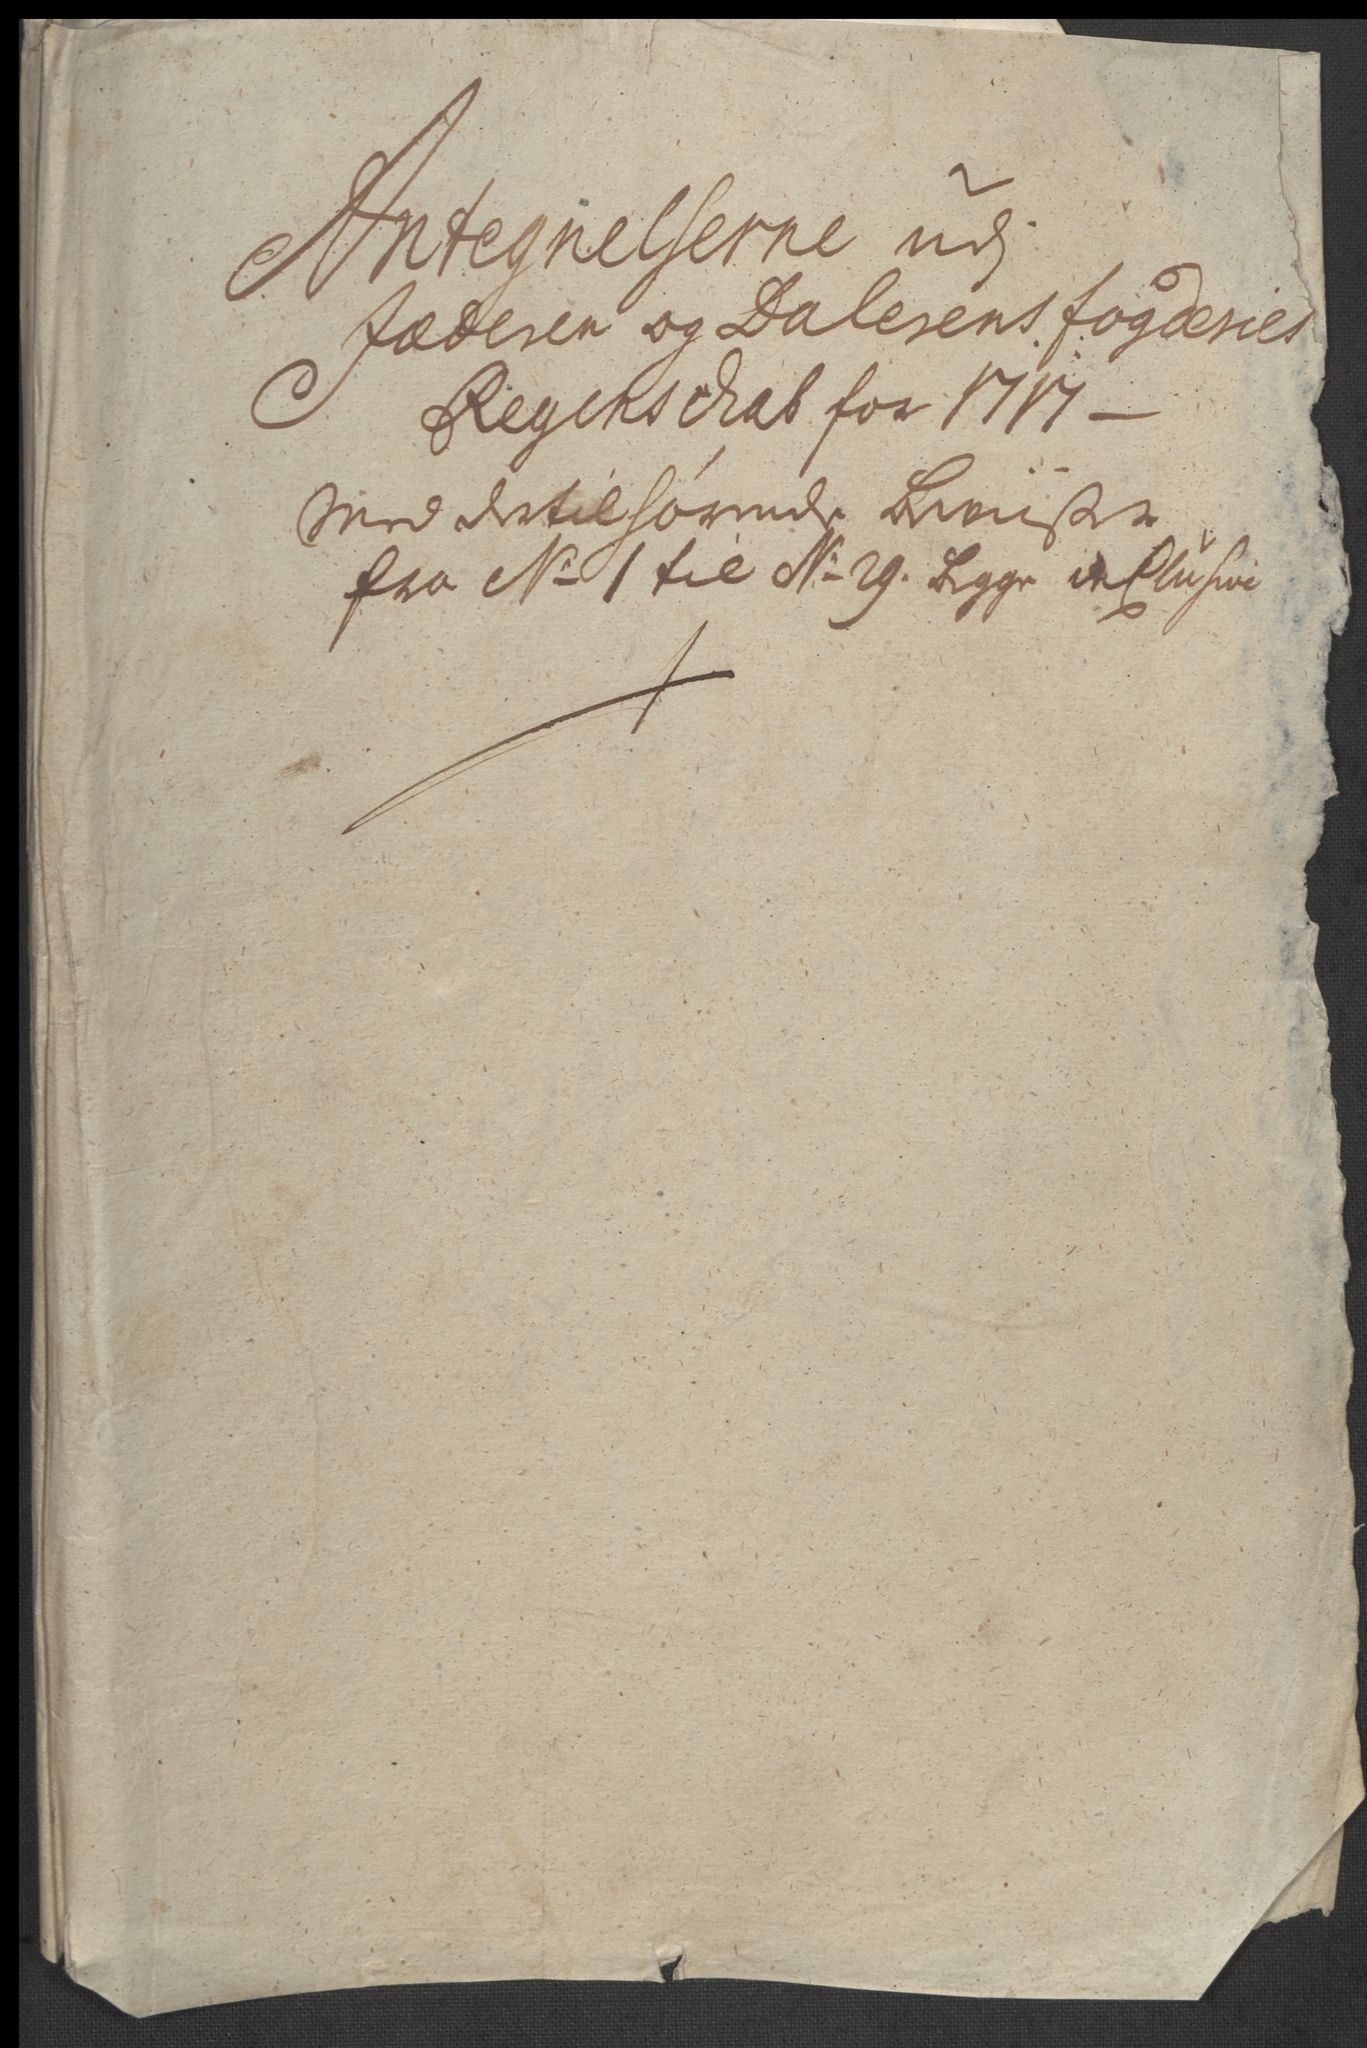 Antegnelserne udj
Jæderen og Dalerens fogderies
Regenschab for 1717 –
med dertilhörende Beviiser
fra No 1 til No 29. begge inclusive